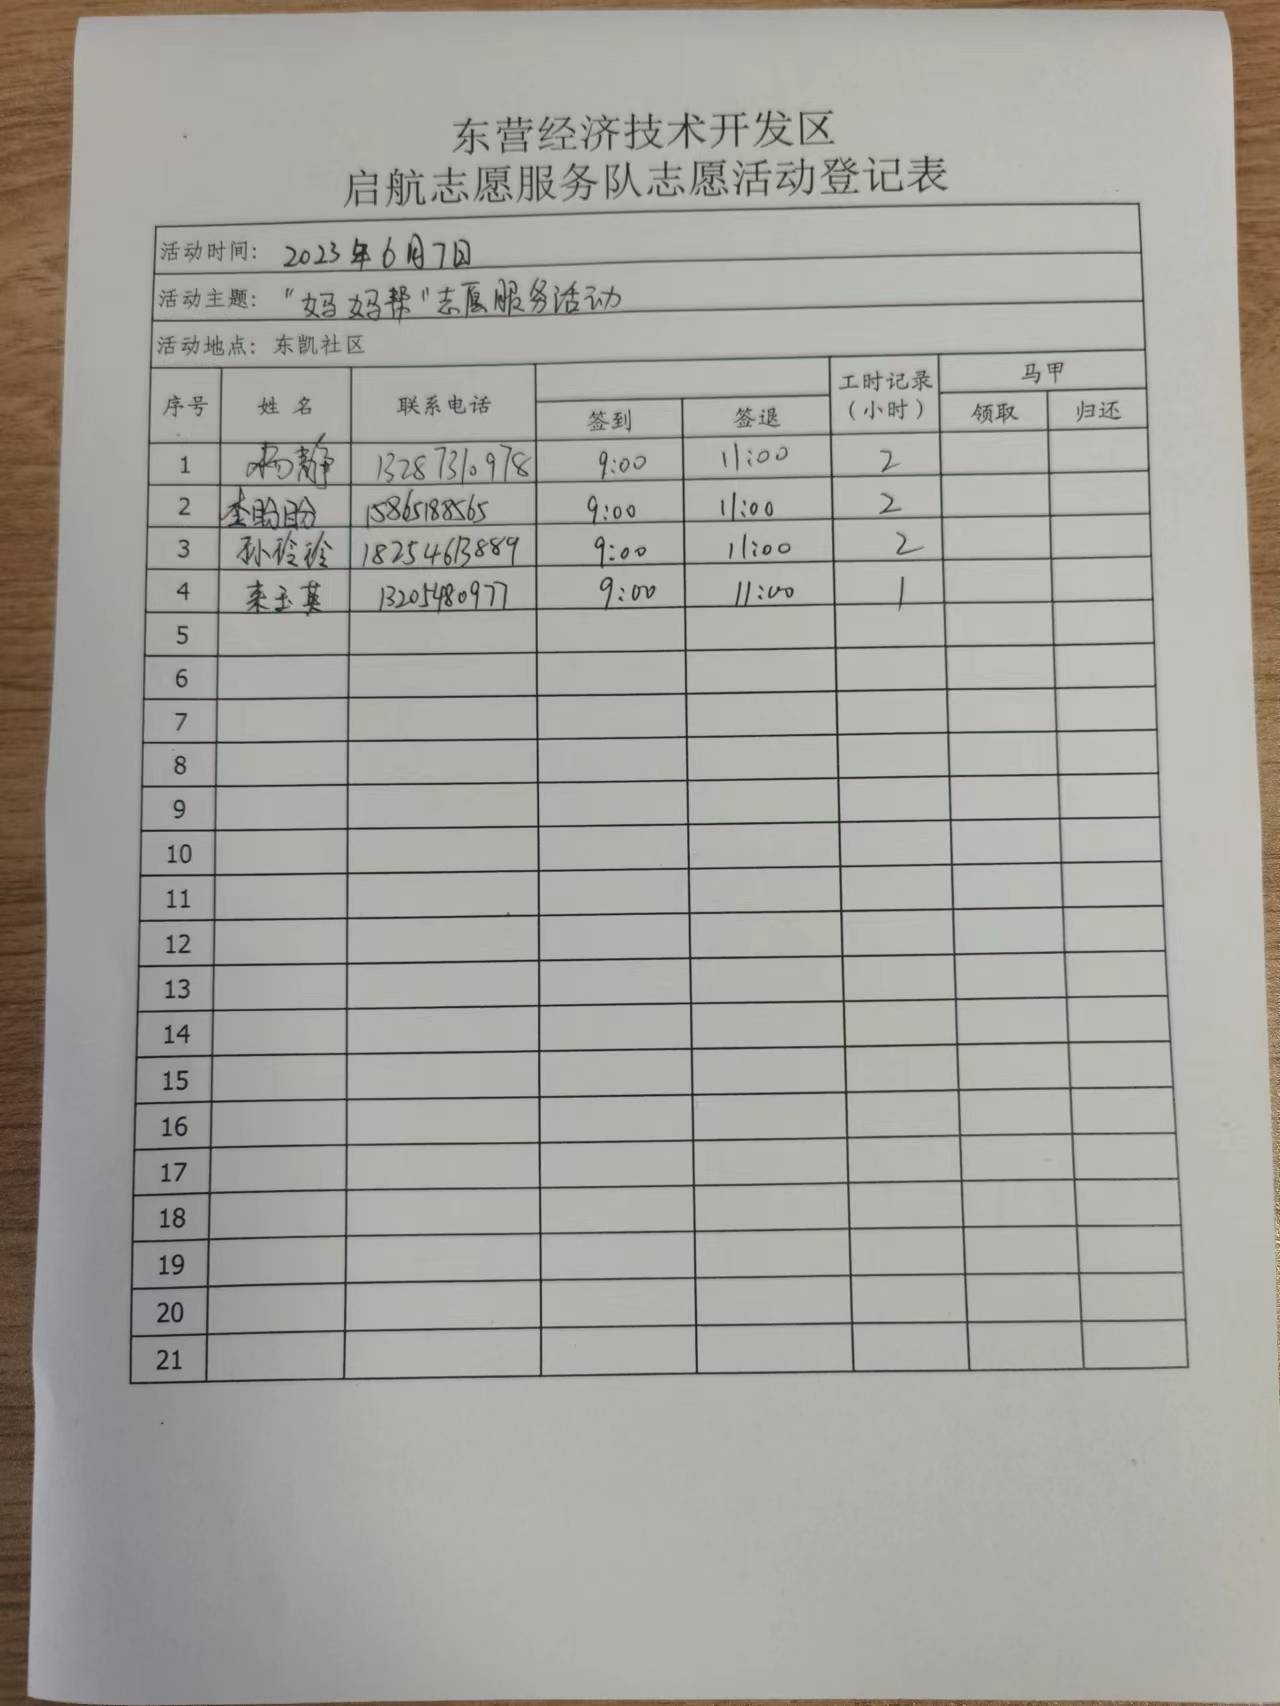 东营经济技术开发区
启航志愿服务队志愿活动登记表
活动时间: 2023年6月7日
活动主题: "妈妈帮"志愿服务活动
活动地点: 东凯社区
序号 姓名 联系电话 签到 签退 工时记录(小时) 马甲 领取 归还
1 杨静 13287310978 9:00 11:00 2
2 李盼盼 15865188565 9:00 11:00 2
3 孙玲玲 18254613889 9:00 11:00 2
4 玉英 13205480977 9:00 11:00 1
5
6
7
8
9
10
11
12
13
14
15
16
17
18
19
20
21